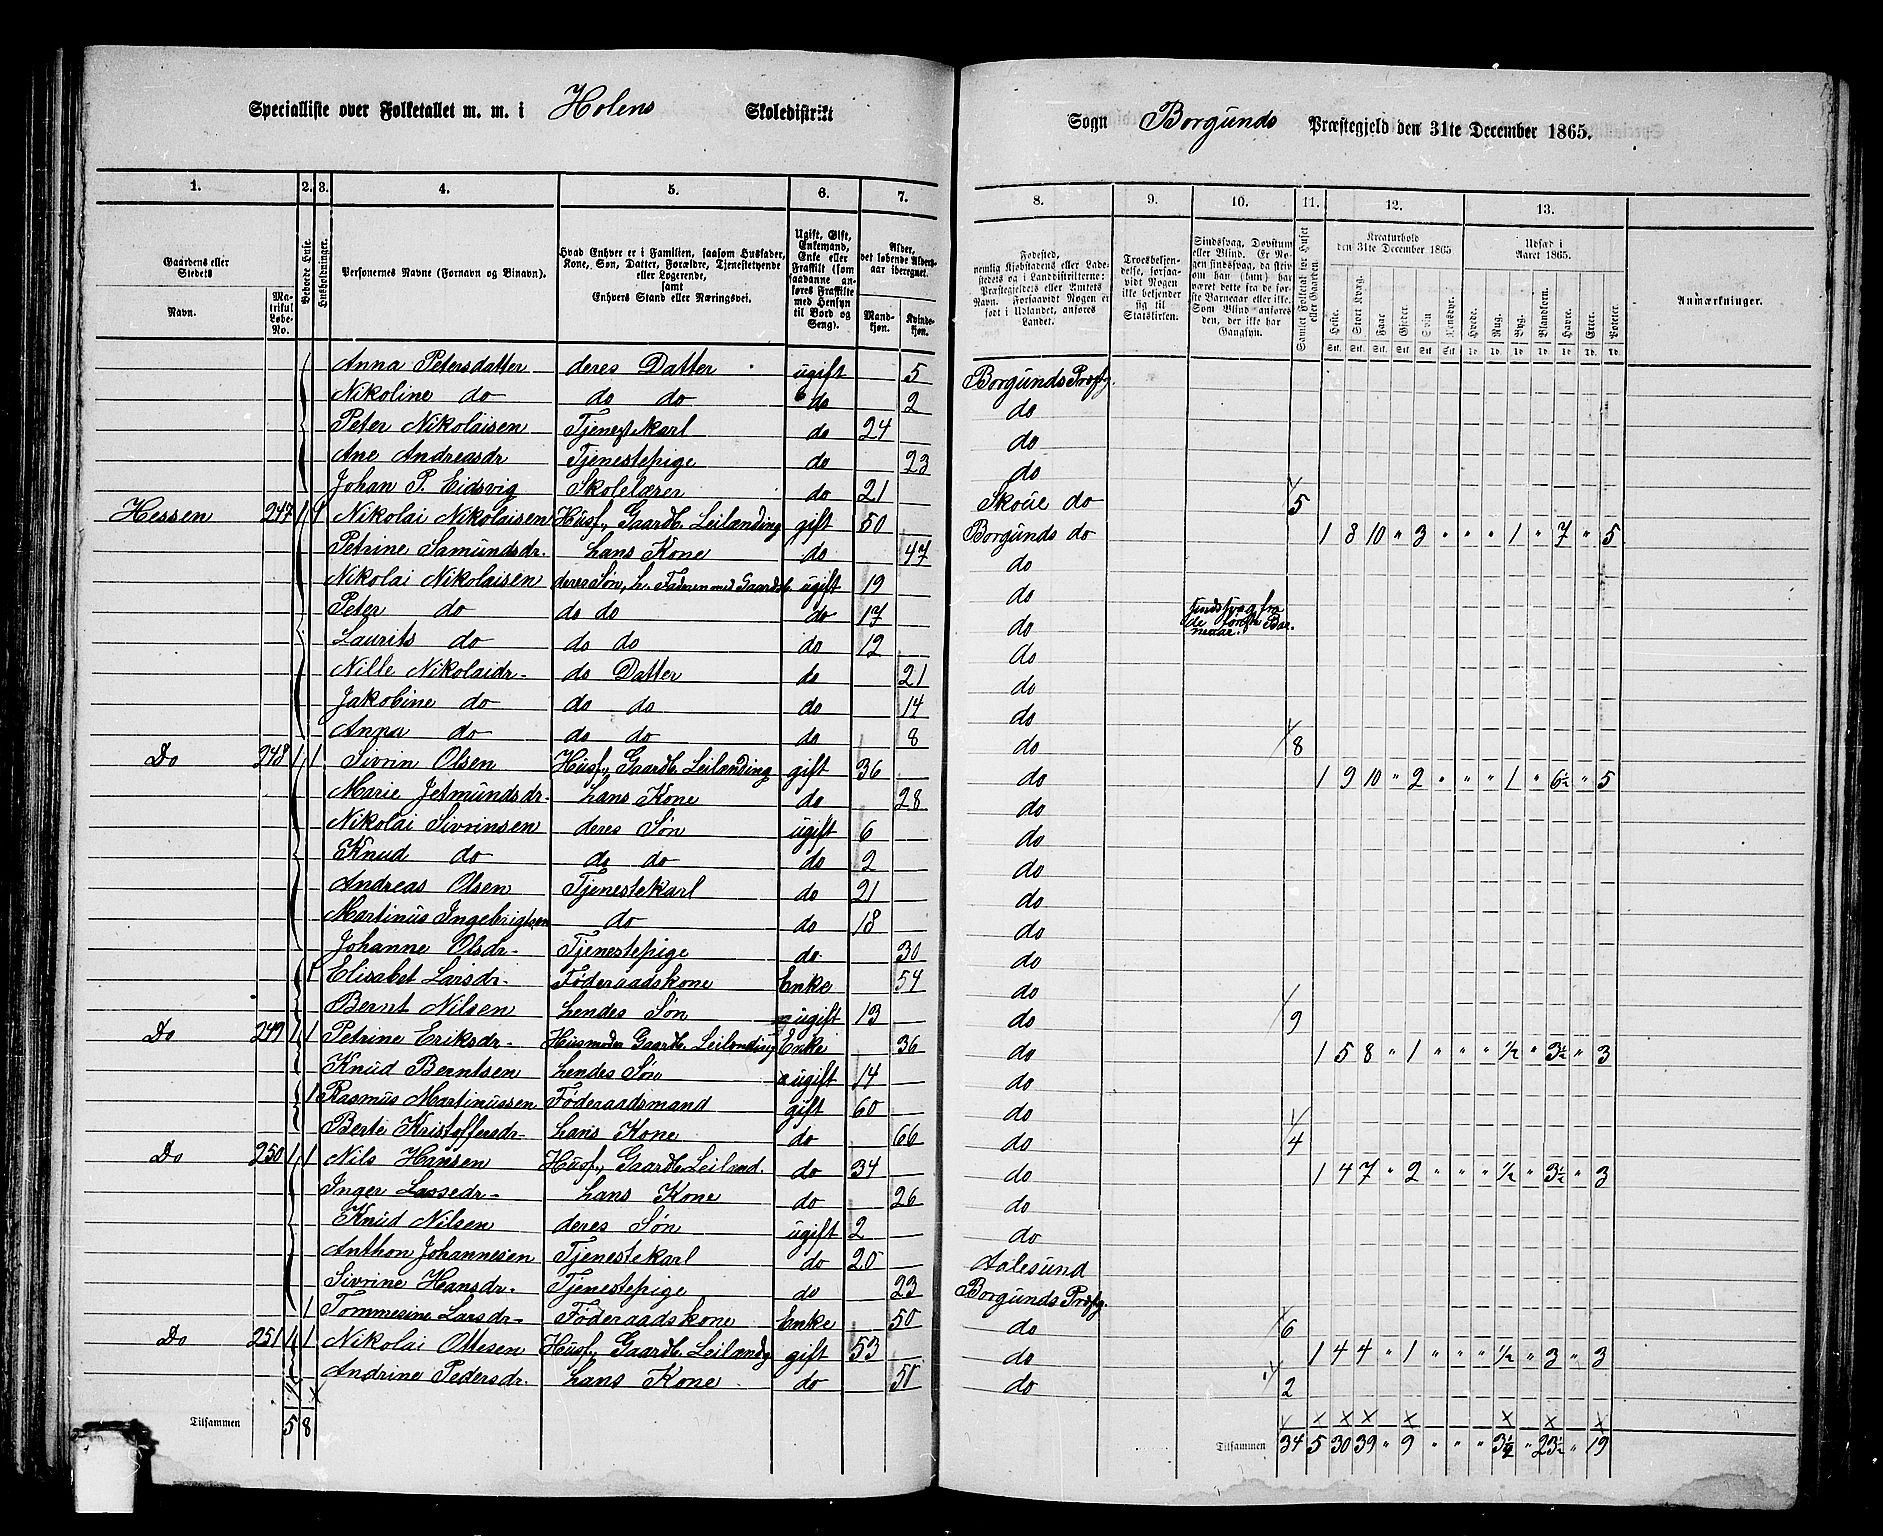 Specialliste over Folketallet m. m. i Holens Skoledistrikt
Sogn Borgunds Præstegjeld den 31te December 1865.
1. 2. 3. 4. 5. 6. 7. 8. 9. 10. 11. 12. 13.
Gaardens eller Stedets
Navn.
Matrikul Løbe-No.
Beboede Huse.
Husholdninger.
Personernes Navne (Fornavn og Binavn).
Hvad Enhver er i Familien, saasom Husfader, Kone, Søn, Datter, Forældre, Tjenestetyende eller Logerende, samt Enhvers Stand eller Næringsvei.
Ugift, Gift, Enkemand, Enke eller Fraskilt (som saadanne anføres Fraskilte med Hensyn til Bord og Seng).
Alder, det løbende Aldersaar iberegnet.
Mandkjøn. Kvindekjøn.
Fødested, nemlig Kjøbstadens eller Ladestedets og i Landdistrikterne: Præstegjeldets eller Amtets Navn. Forsaavidt Nogen er født i Udlandet, anføres Landet.
Troesbekjendelse, forsaavidt Nogen ikke bekjender sig til Statskirken.
Sindssvag, Døvstum eller Blind. Er Nogen sindssvag, da skriv om han (hun) har været dette fra de første Barneaar eller ikke. Som Blind anføres den, der ikke har Gangsyn.
Samlet Folketal for Huset eller Gaarden.
Kreaturhold den 31te December 1865
Heste. Stort Kvæg. Faar. Gjeder. Sviin. Rensdyr.
Udsæd i Aaret 1865.
Hvede. Rug. Byg. Blandkorn. Havre. Erter. Poteter.
Stk. Stk. Stk. Stk. Stk. Stk. Td. Td. Td. Td. Td. Td. Td.
Anmærkninger.
Anna Petersdatter deres Datter ugift 5 Borgunds Præstg.
Nikoline do do do do 2 do
Peter Nikolaisen Tjenestekarl do 24 do
Ane Andreasdr Tjenestepige do 23 do
Johan P. Eidsvig Skolelærer do 21 Skoue do 5
Hessen 247 1 1 Nikolai Nikolaisen Husf., Gaardb. Leilænding gift 50 Borgunds do 1 8 10 " 3 " " " 1 " 7 " 5
Petrine Samundsdr. hans Kone do 47 do
Nikolai Nikolaisen deres Søn, h. Faderen med Gaardsb. ugift 19 do
Peter do do do do 17 do sindssvag fra de første Barneaar.
Laurits do do do do 12 do
Nille Nikolaidr. do Datter do 21 do
Jakobine do do do do 14 do
Anna do do do do 8 do 8
Do 248 1 1 Sivrin Olsen Husf., Gaardb. Leilænding gift 36 do 1 9 10 " 2 " " " 1 " 6½ " 5
Marie Jetmundsdr. hans Kone do 28 do
Nikolai Sivrinsen deres Søn ugift 6 do
Knud do do do do 2 do
Andreas Olsen Tjenestekarl do 21 do
Martinus Ingebrigtsen do do 18 do
Johanne Olsdr. Tjenestepige do 30 do
1 Elisabet Larsdr. Føderaadskone Enke 54 do
Bernt Nilsen hendes Søn ugift 13 do 9
Do 249 1 1 Petrine Eriksdr. Husmoder Gaardb. Leilænding Enke 36 do 1 5 8 " 1 " " " ½ " 3½ " 3
Knud Berntsen hendes Søn ugift 14 do
1 Rasmus Martinussen Føderaadsmand gift 60 do
Berte Kristoffersdr. hans Kone do 66 do 4
Do 250 1 1 Nils Hansen Husf., Gaardb. Leilænd. do 34 do 1 4 7 " 2 " " " ½ " 3½ " 3
Inger Lassedr. hans Kone do 26 do
Knud Nilsen deres Søn ugift 2 do
Anthon Johannesen Tjenestekarl do 20 Aalesund
Sivrine Hansdr. Tjenestepige do 23 Borgunds Præstg.
1 Tommesine Larsdr. Føderaadskone Enke 50 do 6
Do 251 1 1 Nikolai Ottesen Husf., Gaardb. Leilændg gift 53 do 1 4 4 " 1 " " " ½ " 3 " 3
Andrine Pedersdr. hans Kone do 50 do 2
Tilsammen 5 8
Tilsammen 34 5 30 39 " 9 " " " 3½ " 23½ " 19